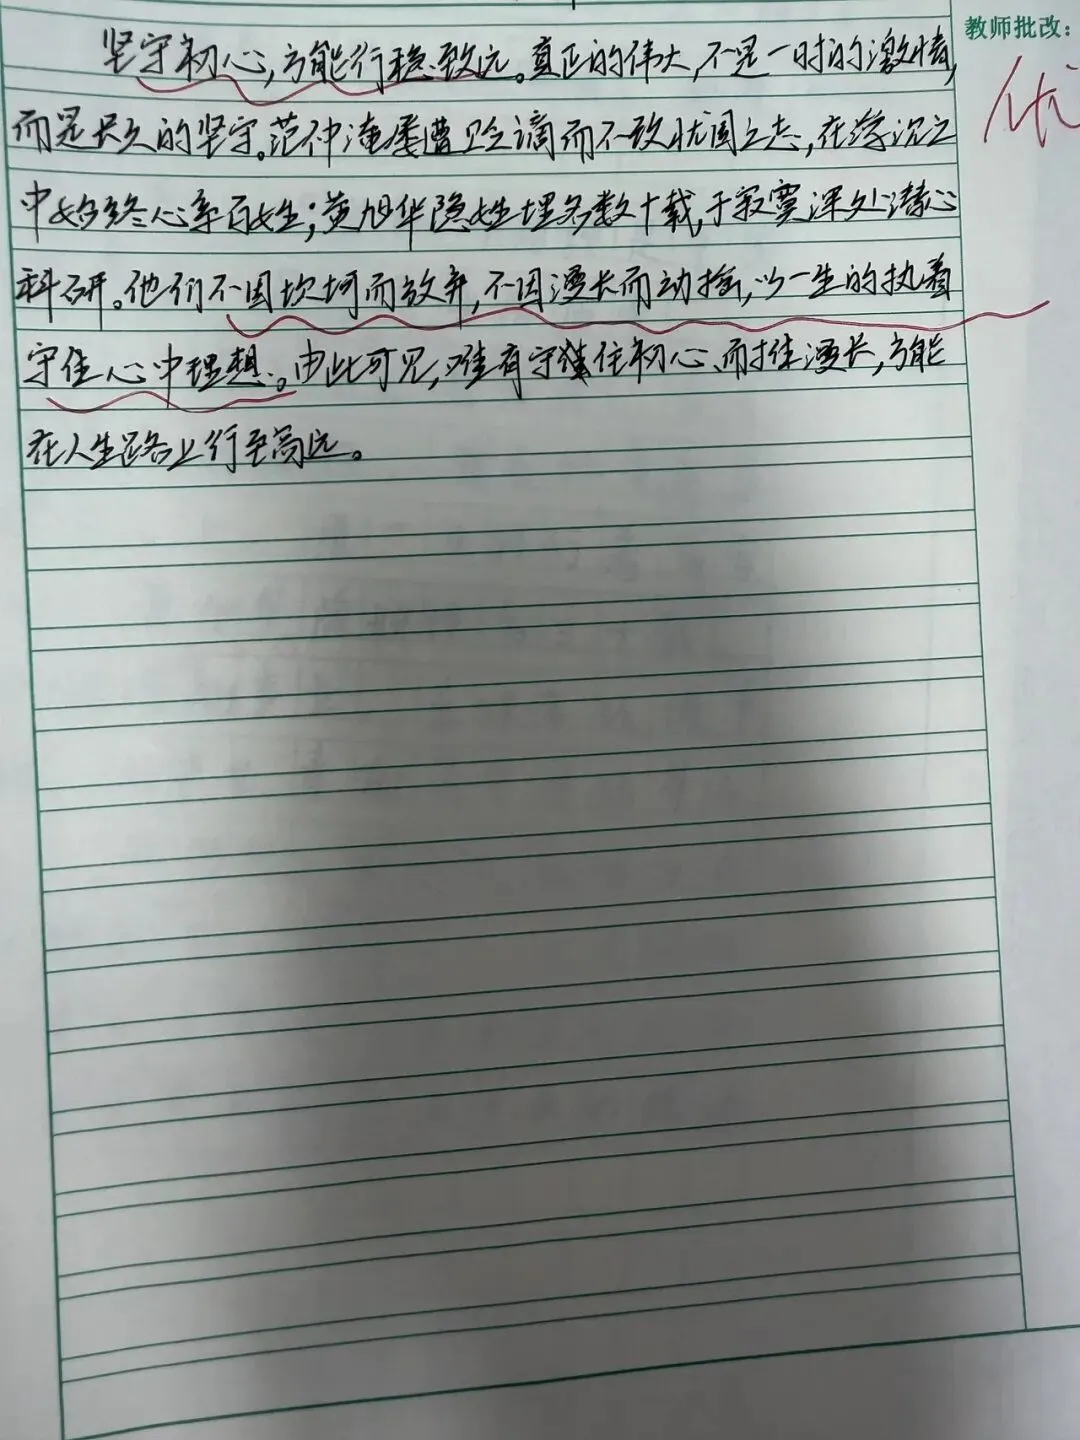 教师批改：
优
坚守初心，方能行稳致远。真正的伟大，不是一时的激情，
而是长久的坚守。范仲淹屡遭贬谪而不改忧国之志，在浮沉之
中始终心系百姓；黄旭华隐姓埋名数十载，于寂寞深处潜心
科研。他们不因坎坷而放弃，不因漫长而动摇，以一生的执着
守住心中理想。由此可见，唯有守住初心、耐住漫长，方能
在人生路上行至高远。